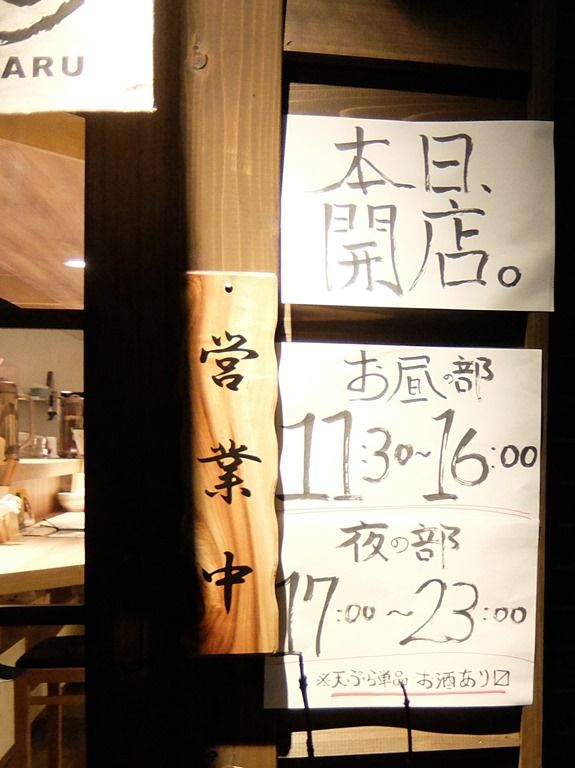 ARU
本日、
開店。
営業中
お昼の部
11:30~16:00
夜の部
17:00~23:00
※天ぷら単品 お酒あり〼